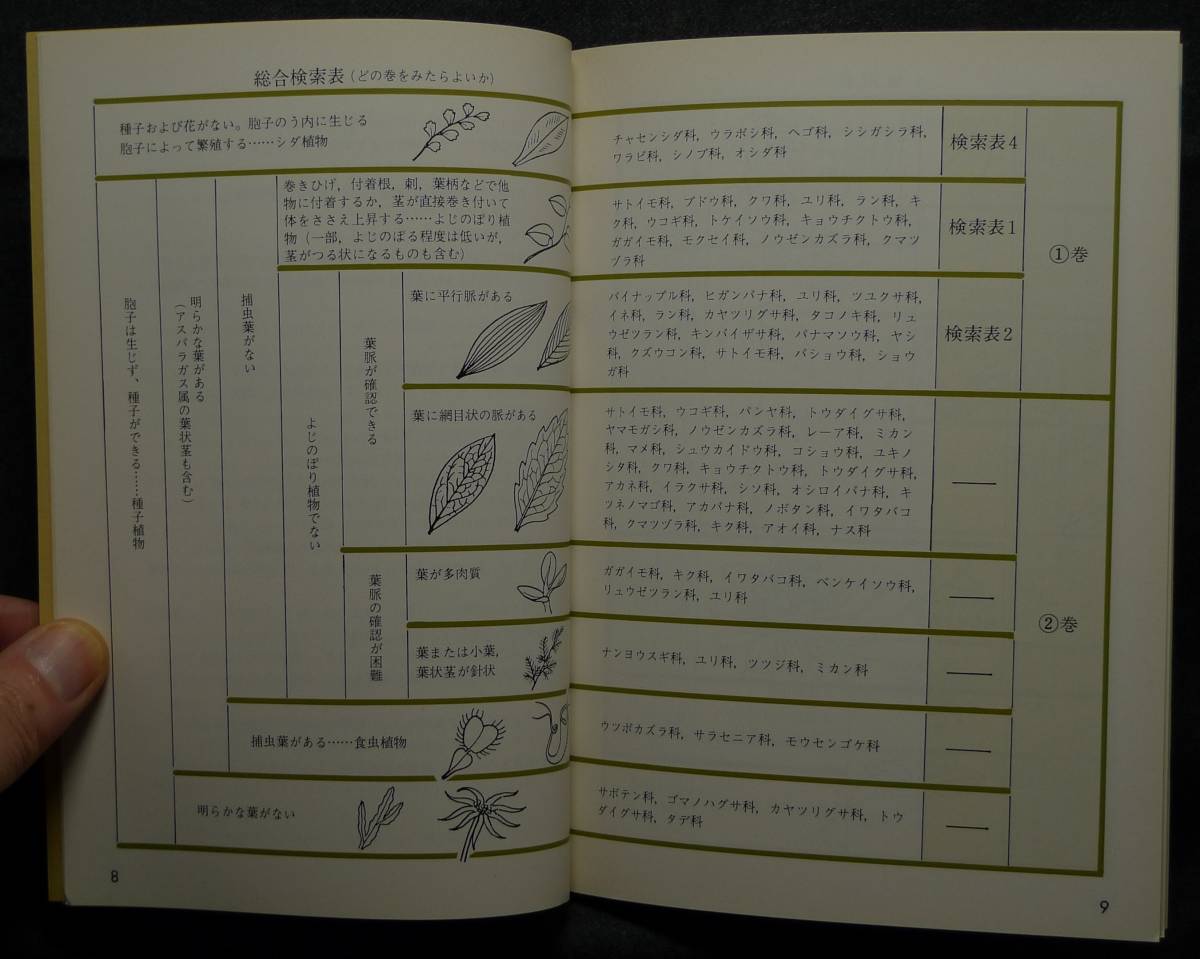 総合検索表(どの巻をみたらよいか)
種子および花がない。胞子のう内に生じる
胞子によって繁殖する……シダ植物
チャセンシダ科, ウラボシ科, ヘゴ科, シシガシラ科,
ワラビ科, シノブ科, オシダ科
検索表4
胞子は生じず、種子ができる……種子植物
明らかな葉がある
(アスパラガス属の葉状茎も含む)
捕虫葉がない
巻きひげ, 付着根, 刺, 葉柄などで他
物に付着するか, 茎が直接巻き付いて
体をささえ上昇する……よじのぼり植
物(一部, よじのぼる程度は低いが,
茎がつる状になるものも含む)
サトイモ科, ブドウ科, クワ科, ユリ科, ラン科, キ
ク科, ウコギ科, トケイソウ科, キョウチクトウ科,
ガガイモ科, モクセイ科, ノウゼンカズラ科, クマツ
ヅラ科
検索表1
①巻
よじのぼり植物でない
葉脈が確認できる
葉に平行脈がある
パイナップル科, ヒガンバナ科, ユリ科, ツユクサ科,
イネ科, ラン科, カヤツリグサ科, タコノキ科, リュ
ウゼツラン科, キンバイザサ科, パナマソウ科, ヤシ
科, クズウコン科, サトイモ科, バショウ科, ショウ
ガ科
検索表2
葉に網目状の脈がある
サトイモ科, ウコギ科, パンヤ科, トウダイグサ科,
ヤマモガシ科, ノウゼンカズラ科, レーア科, ミカン
科, マメ科, シュウカイドウ科, コショウ科, ユキノ
シタ科, クワ科, キョウチクトウ科, トウダイグサ科,
アカネ科, イラクサ科, シソ科, オシロイバナ科, キ
ツネノマゴ科, アカバナ科, ノボタン科, イワタバコ
科, クマツヅラ科, キク科, アオイ科, ナス科
――
葉脈の確認が困難
葉が多肉質
ガガイモ科, キク科, イワタバコ科, ベンケイソウ科,
リュウゼツラン科, ユリ科
――
②巻
葉または小葉,
葉状茎が針状
ナンヨウスギ科, ユリ科, ツツジ科, ミカン科
――
捕虫葉がある……食虫植物
ウツボカズラ科, サラセニア科, モウセンゴケ科
――
明らかな葉がない
サボテン科, ゴマノハグサ科, カヤツリグサ科, トウ
ダイグサ科, タデ科
――
8
9